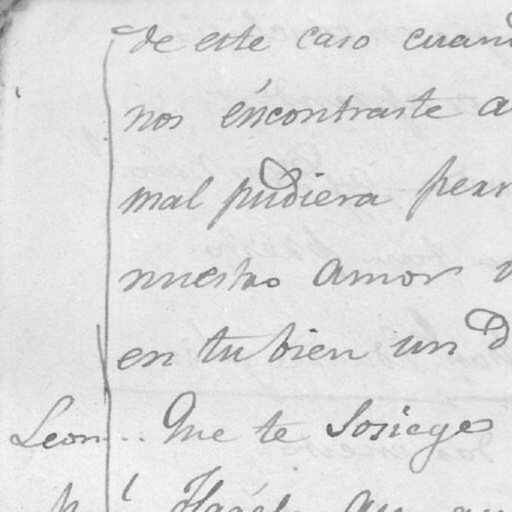 de este caso cuand
nos éncontraste a
mal pudiera
nuestro amor
en tu bien un
Leon.. Que te Sosieges